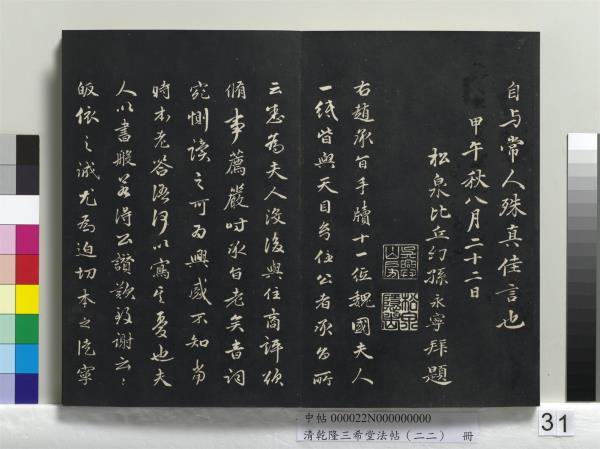 自与常人殊真佳言也
甲午秋八月二十二日
松泉比丘幻孫永寧拜題
右趙承旨手牘十一位魏國夫人
一紙皆與天目為住公者承旨所
云愚為夫人沒後與住商評頌
脩事薦嚴時承旨老矣書詞
悲惻讀之可為興感不知當
時本老答語何以寫其憂也夫
人以書般若得公讚歎致謝云云
皈依之誠尤為迫切本之徒寧
中帖 000022N000000000
清乾隆三希堂法帖(二二) 冊
31